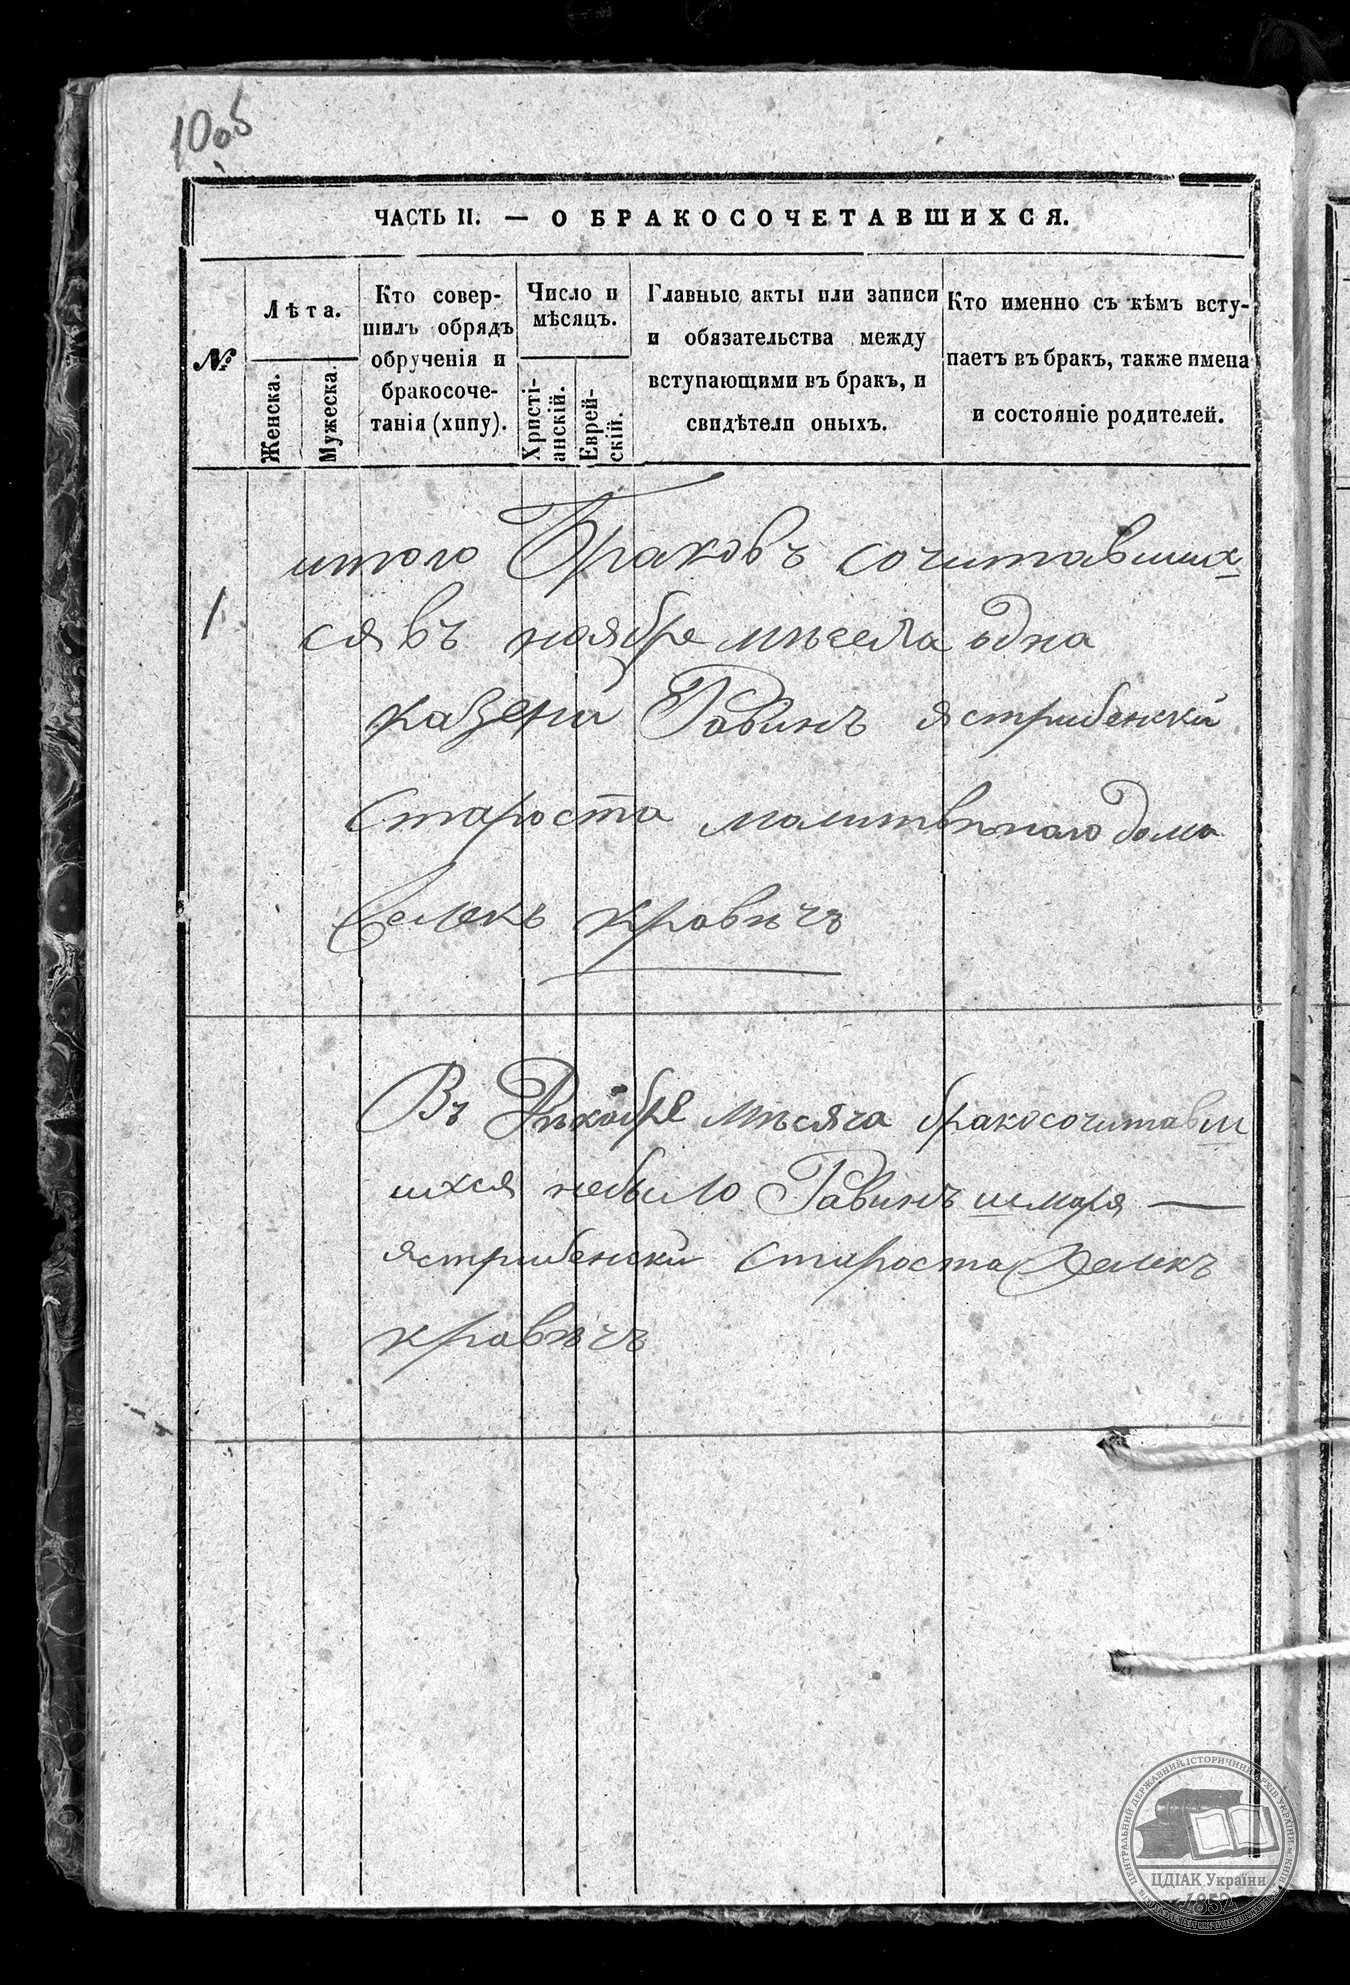 100б
ЧАСТЬ II. — О БРАКОСОЧЕТАВШИХСЯ.
№
Лѣта.
Женска.
Мужеска.
Кто совер-
шилъ обрядъ
обрученія и
бракосоче-
танія (хипу).
Число и
мѣсяцъ.
Христі-
анскій.
Еврей-
скій.
Главные акты или записи
и обязательства между
вступающими въ бракъ, и
свидѣтели оныхъ.
Кто именно съ кѣмъ всту-
паетъ въ бракъ, также имена
и состояніе родителей.
итого Браковъ сочитавших
1 ся въ ноябре мѣсеца одна
казени Равинъ ястрибенски
Староста молитвѣнаго дома
Селекъ кравѣчъ
Въ Дѣкабре мѣсяча бракосочитавш
ихся небыло Равинъ шмаря —
ястрибенски Староста Селекъ
кравѣчъ
ЦЕНТРАЛЬНИЙ ДЕРЖАВНИЙ ІСТОРИЧНИЙ АРХІВ УКРАЇНИ, м. КИЇВ
ЦДІАК України
1852